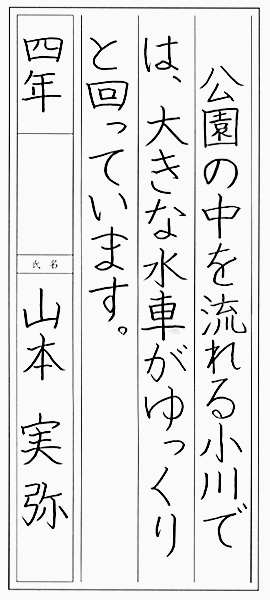 公園の中を流れる小川で
は、大きな水車がゆっくり
と回っています。
四年
氏名
山本 実弥